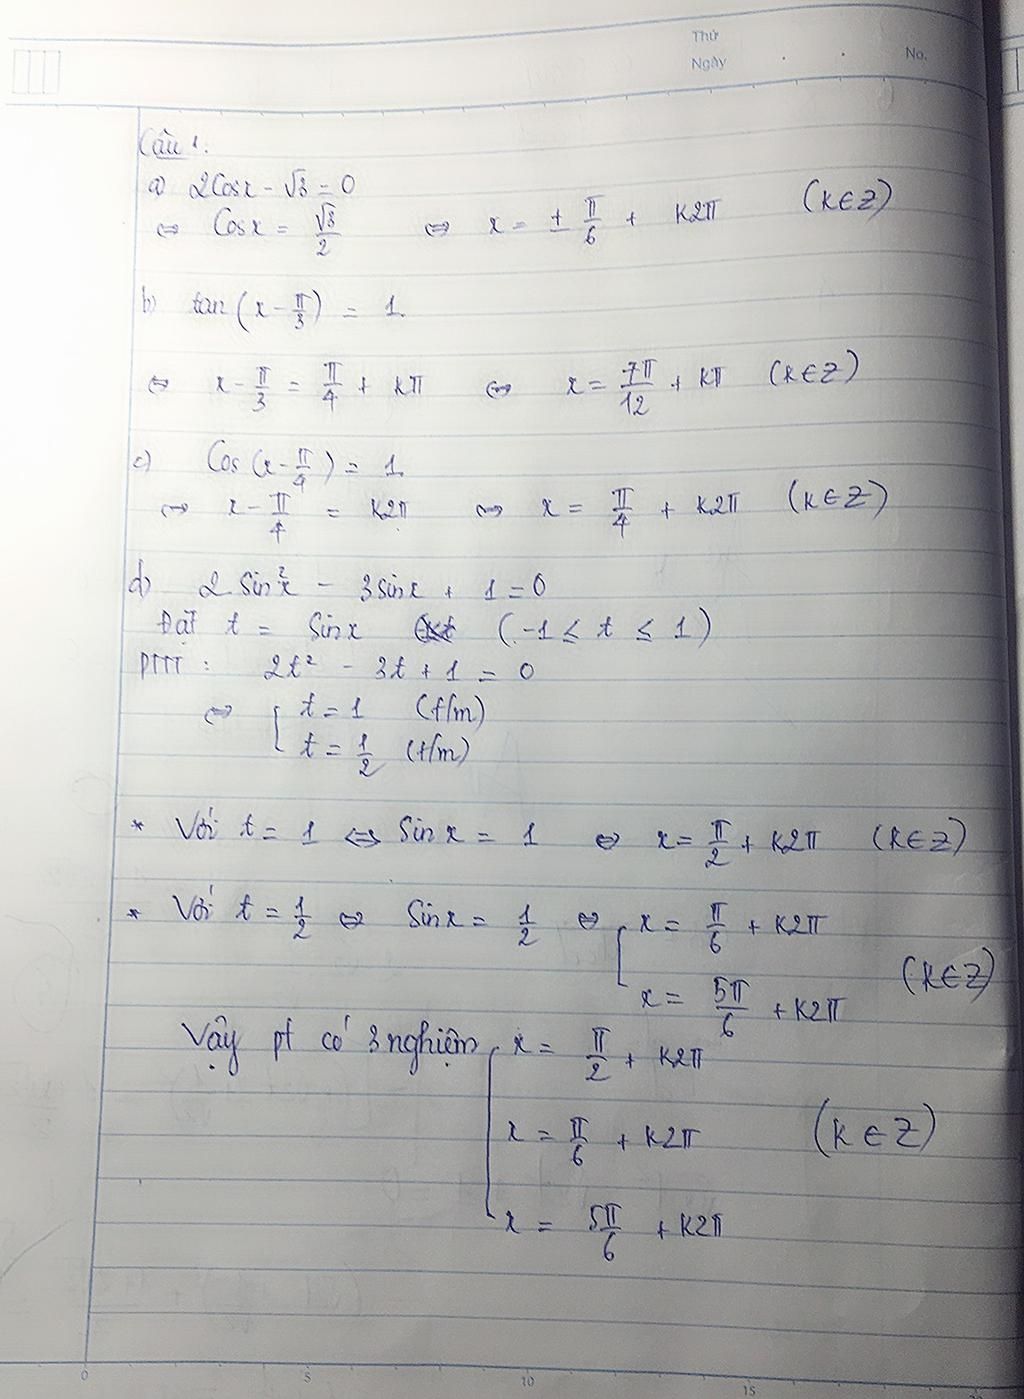 Thứ
Ngày
No.
Câu 1.
a) 2Cosx - √3 = 0
⇔ Cosx = √3/2 ⇔ x = ± π/6 + k2π (k∈Z)
b) tan(x - π/3) = 1.
⇔ x - π/3 = π/4 + kπ ⇔ x = 7π/12 + kπ (k∈Z)
c) Cos(x - π/4) = 1.
⇔ x - π/4 = k2π ⇔ x = π/4 + k2π (k∈Z)
d) 2 Sin²x - 3sinx + 1 = 0
Đặt t = Sinx (-1 ≤ t ≤ 1)
PTTT : 2t² - 3t + 1 = 0
⇔ [ t = 1 (t/m)
t = 1/2 (t/m)
* Với t = 1 ⇔ Sinx = 1 ⇔ x = π/2 + k2π (k∈Z)
* Với t = 1/2 ⇔ Sinx = 1/2 ⇔ [ x = π/6 + k2π
x = 5π/6 + k2π (k∈Z)
Vậy pt có 3 nghiệm [ x = π/2 + k2π
x = π/6 + k2π (k∈Z)
x = 5π/6 + k2π
0 5 10 15